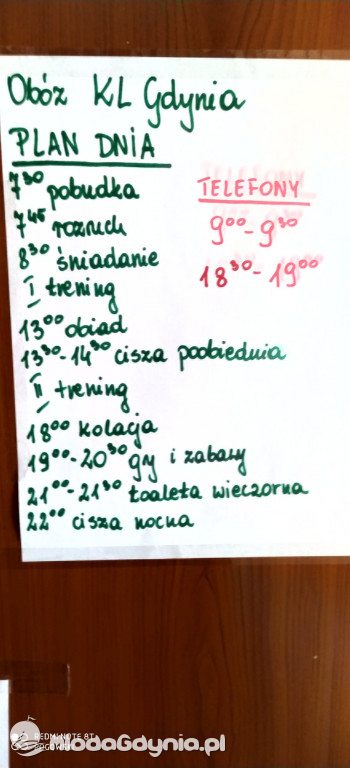 Obóz KL Gdynia
PLAN DNIA
7³⁰ pobudka
7⁴⁵ rozruch
8³⁰ śniadanie
I trening
13⁰⁰ obiad
13³⁰-14³⁰ cisza poobiednia
II trening
18⁰⁰ kolacja
19⁰⁰-20³⁰ gry i zabawy
21⁰⁰-21³⁰ toaleta wieczorna
22⁰⁰ cisza nocna
TELEFONY
9⁰⁰-9³⁰
18³⁰-19⁰⁰
REDMI NOTE 8T
ModaGdynia.pl